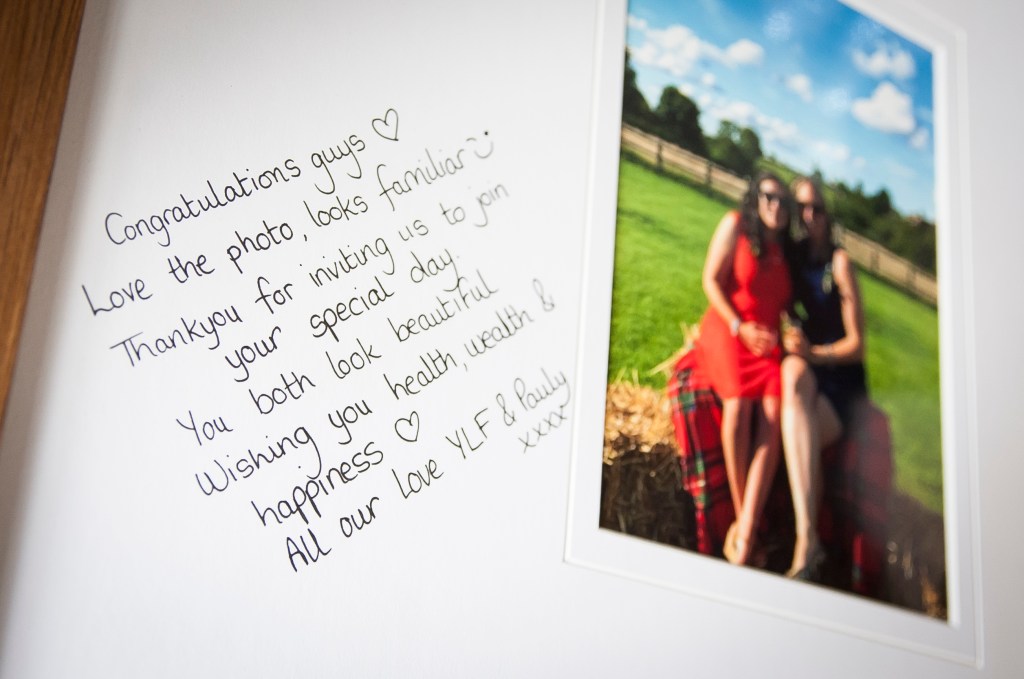 Congratulations guys ♡
Love the photo, looks familiar :)
Thankyou for inviting us to join
your special day.
You both look beautiful
Wishing you health, wealth &
happiness ♡
All our love YLF & Pauly
xxxx